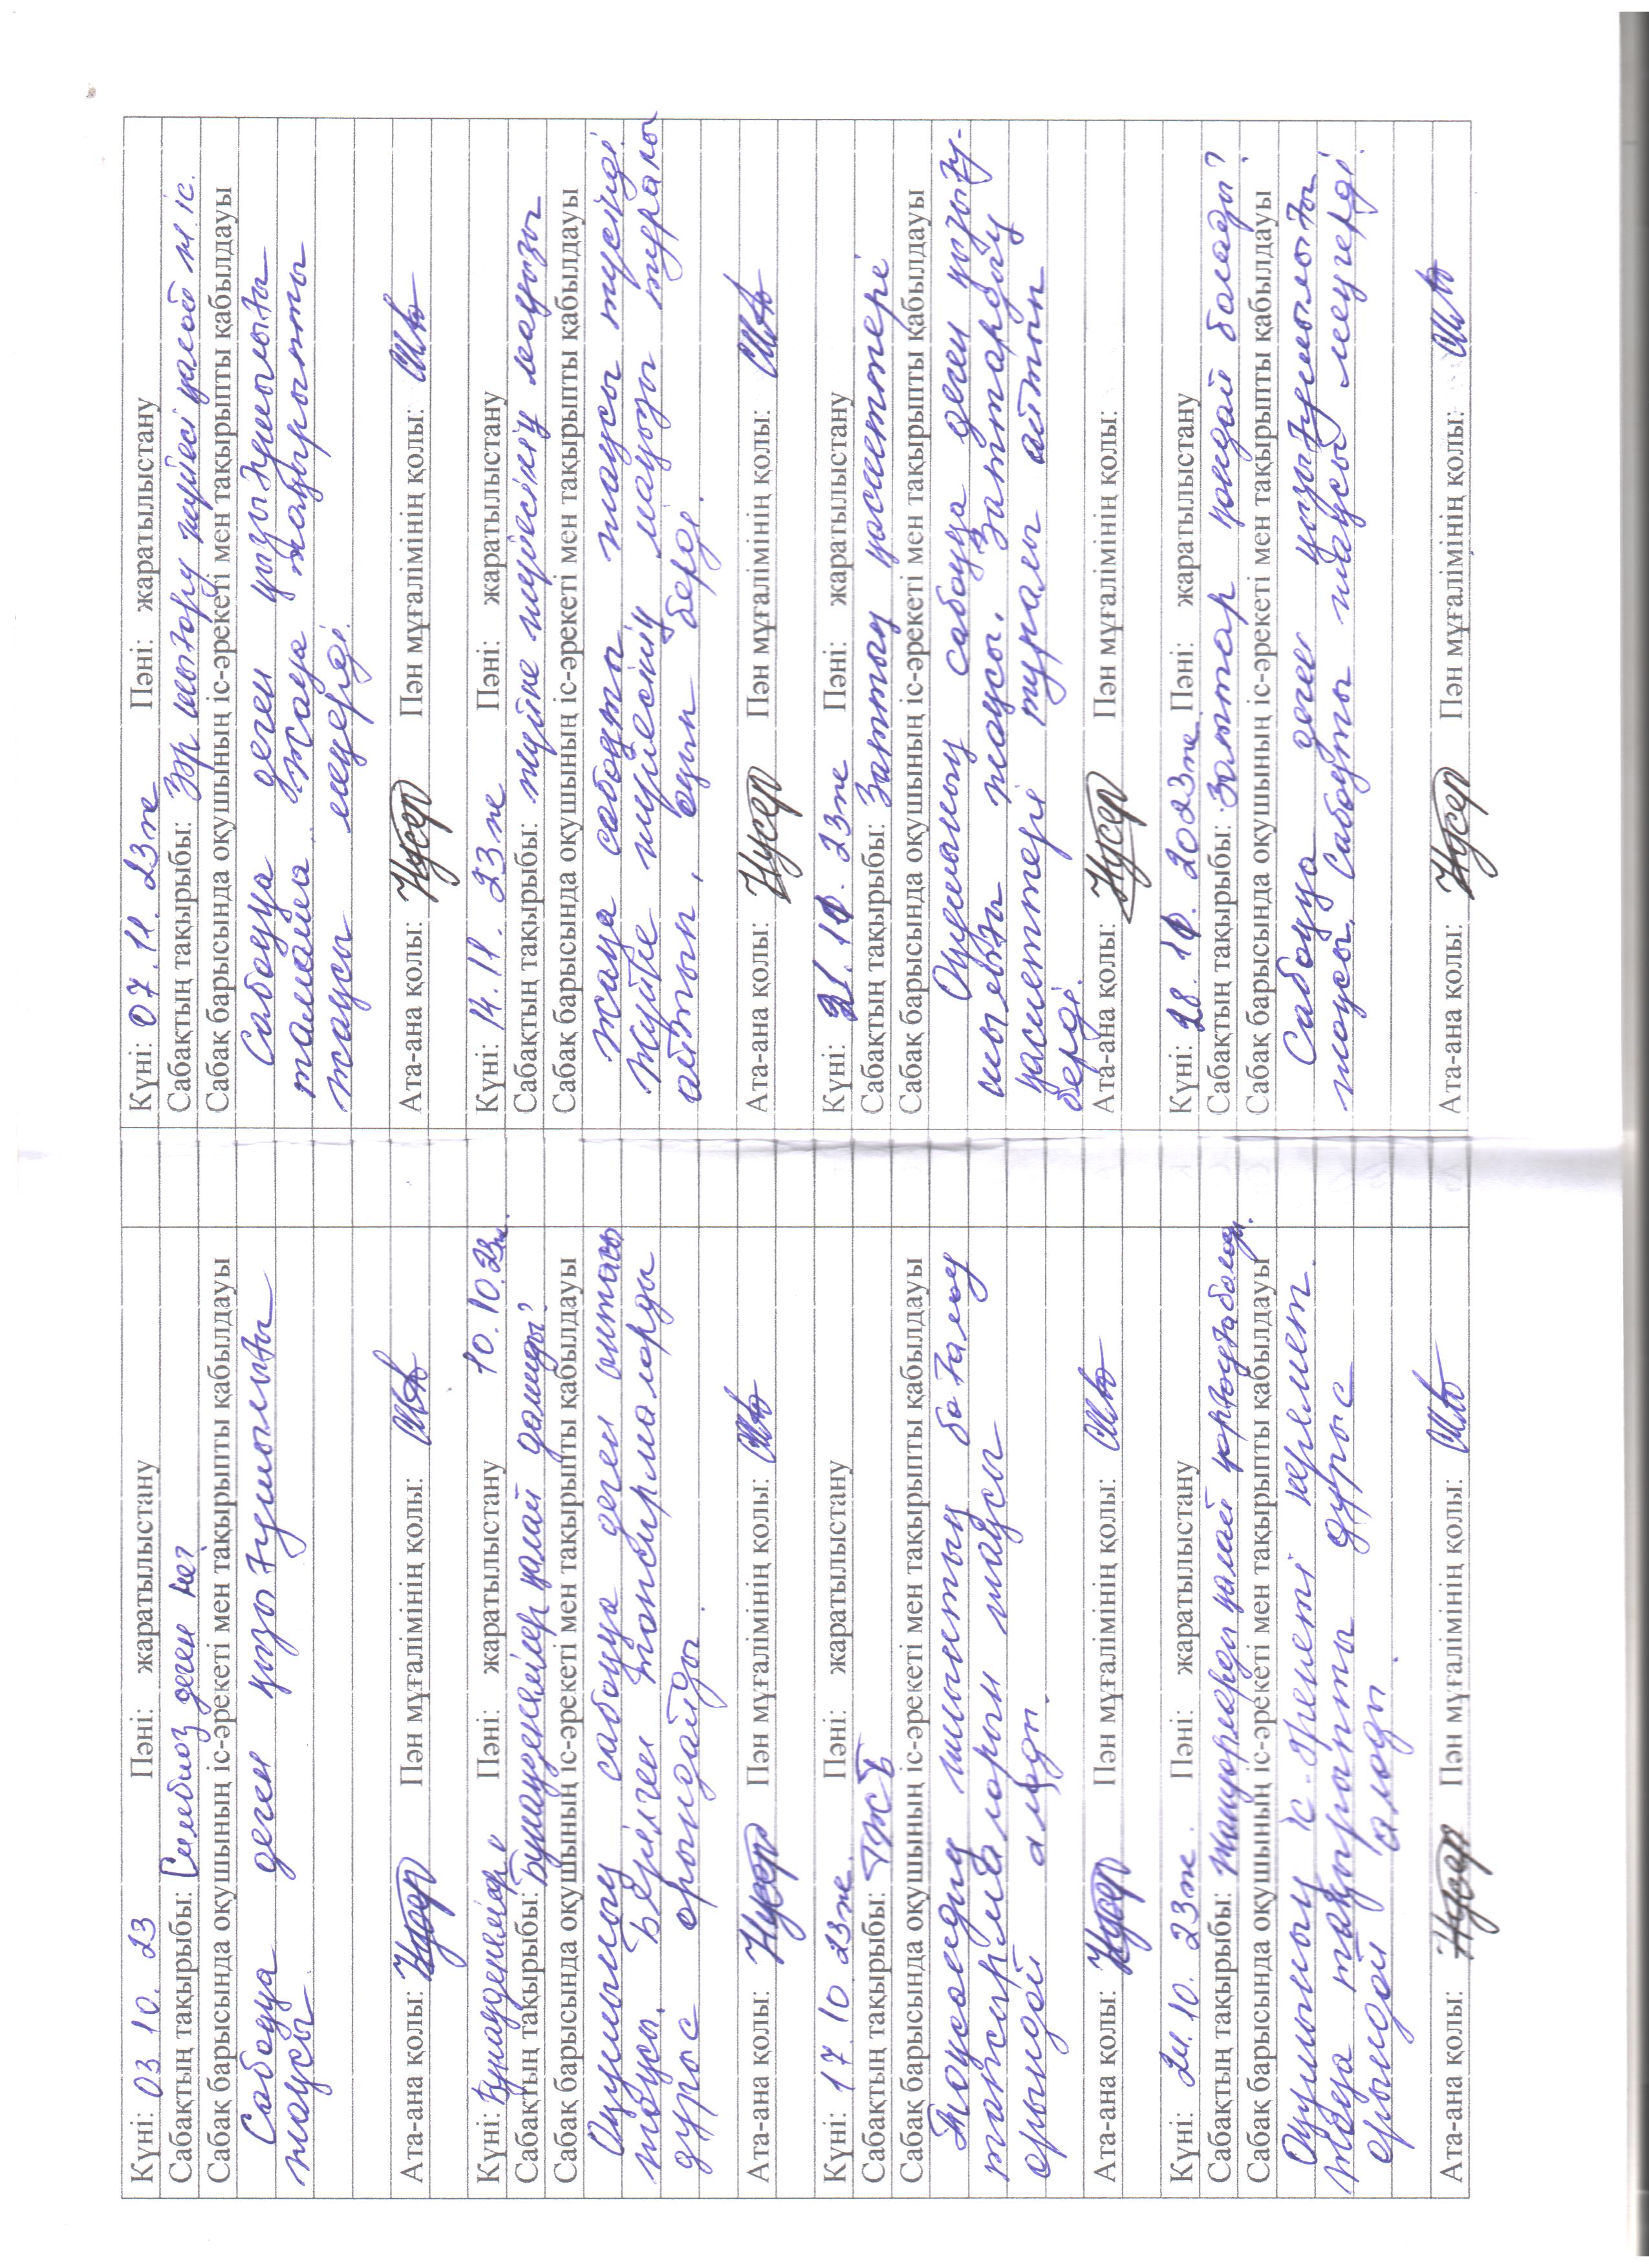 Күні: 03 10. 23 Пәні: жаратылыстану
Сабақтың тақырыбы: Симбиоз деген не?
Сабақ барысында оқушының іс-әрекеті мен тақырыпты қабылдауы
Сабаққа деген қызығушылығы
жақсы.
Ата-ана қолы: Пән мұғалімінің қолы:
Күні: Бунақденелілер 10.10.23ж.
Пәні: жаратылыстану
Сабақтың тақырыбы: Бунақденелілер қалай дамиды?
Сабақ барысында оқушының іс-әрекеті мен тақырыпты қабылдауы
Оқушының сабаққа деген ынтасы
жақсы. Берілген тапсырмаларды
дұрыс орындайды.
Ата-ана қолы: Пән мұғалімінің қолы:
Күні: 17. 10 23ж. Пәні: жаратылыстану
Сабақтың тақырыбы: ТЖБ
Сабақ барысында оқушының іс-әрекеті мен тақырыпты қабылдауы
Тоқсандық жиынтық бағалау
тапсырмаларын жақсы
орындай алды.
Ата-ана қолы: Пән мұғалімінің қолы:
Күні: 24. 10. 23ж. Пәні: жаратылыстану
Сабақтың тақырыбы: Жануарларды қалай қорғауға болады.
Сабақ барысында оқушының іс-әрекеті мен тақырыпты қабылдауы
Оқушының іс-әрекеті керемет.
Жаңа тақырыпты дұрыс
орындай алды.
Ата-ана қолы: Пән мұғалімінің қолы:
Күні: 07. 11. 23ж Пәні: жаратылыстану
Сабақтың тақырыбы: Зәр шығару жүйесі қалай ж. іс.
Сабақ барысында оқушының іс-әрекеті мен тақырыпты қабылдауы
Сабаққа деген қызығушылығы
тамаша. Жаңа тақырыпты
жақсы меңгерді.
Ата-ана қолы: Пән мұғалімінің қолы:
Күні: 14. 11. 23ж Пәні: жаратылыстану
Сабақтың тақырыбы: жүйке жүйесінің маңызы
Сабақ барысында оқушының іс-әрекеті мен тақырыпты қабылдауы
Жаңа сабақты жақсы түсінді.
Жүйке жүйесінің маңызы туралы
айтып, берді.
Ата-ана қолы: Пән мұғалімінің қолы:
Күні: 21. 11. 23ж Пәні: жаратылыстану
Сабақтың тақырыбы: Заттың қасиеттері
Сабақ барысында оқушының іс-әрекеті мен тақырыпты қабылдауы
Оқушының сабаққа деген қызығу-
шылығы жақсы. Заттардың
қасиеттері туралы айтып
берді.
Ата-ана қолы: Пән мұғалімінің қолы:
Күні: 28. 11. 2023ж. Пәні: жаратылыстану
Сабақтың тақырыбы: Заттар қандай болады?
Сабақ барысында оқушының іс-әрекеті мен тақырыпты қабылдауы
Сабаққа деген қызығушылығы
жақсы. Сабақты жақсы меңгерді.
Ата-ана қолы: Пән мұғалімінің қолы: